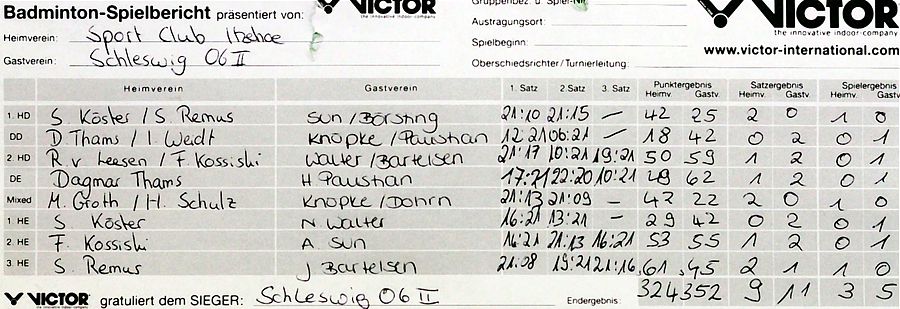 Badminton-Spielbericht präsentiert von: VICTOR
the innovative indoor-company
Heimverein: Sport Club Itzehoe
Gastverein: Schleswig 06 II
Austragungsort:
Spielbeginn:
Oberschiedsrichter/Turnierleitung:
VICTOR
the innovative indoor-company
www.victor-international.com
Heimverein Gastverein 1. Satz 2. Satz 3. Satz Punktergebnis Heimv. Gastv. Satzergebnis Heimv. Gastv. Spielergebnis Heimv. Gastv.
1. HD S. Köster / S. Remus Sun / Börsting 21:10 21:15 — 42 25 2 0 1 0
DD D. Thams / I. Weidt Knopke / Paustian 12:21 06:21 — 18 42 0 2 0 1
2. HD R. v Leesen / F. Kossiski Walter / Bartelsen 21:17 10:21 19:21 50 59 1 2 0 1
DE Dagmar Thams H Paustian 17:21 22:20 10:21 49 62 1 2 0 1
Mixed M. Groth / H. Schulz Knopke / Dohrn 21:13 21:09 — 42 22 2 0 1 0
1. HE S. Köster N Walter 16:21 13:21 — 29 42 0 2 0 1
2. HE F. Kossiski A Sun 16:21 21:13 16:21 53 55 1 2 0 1
3. HE S. Remus J Bartelsen 21:08 19:21 21:16 61 45 2 1 1 0
VICTOR gratuliert dem SIEGER: Schleswig 06 II Endergebnis: 324 352 9 11 3 5